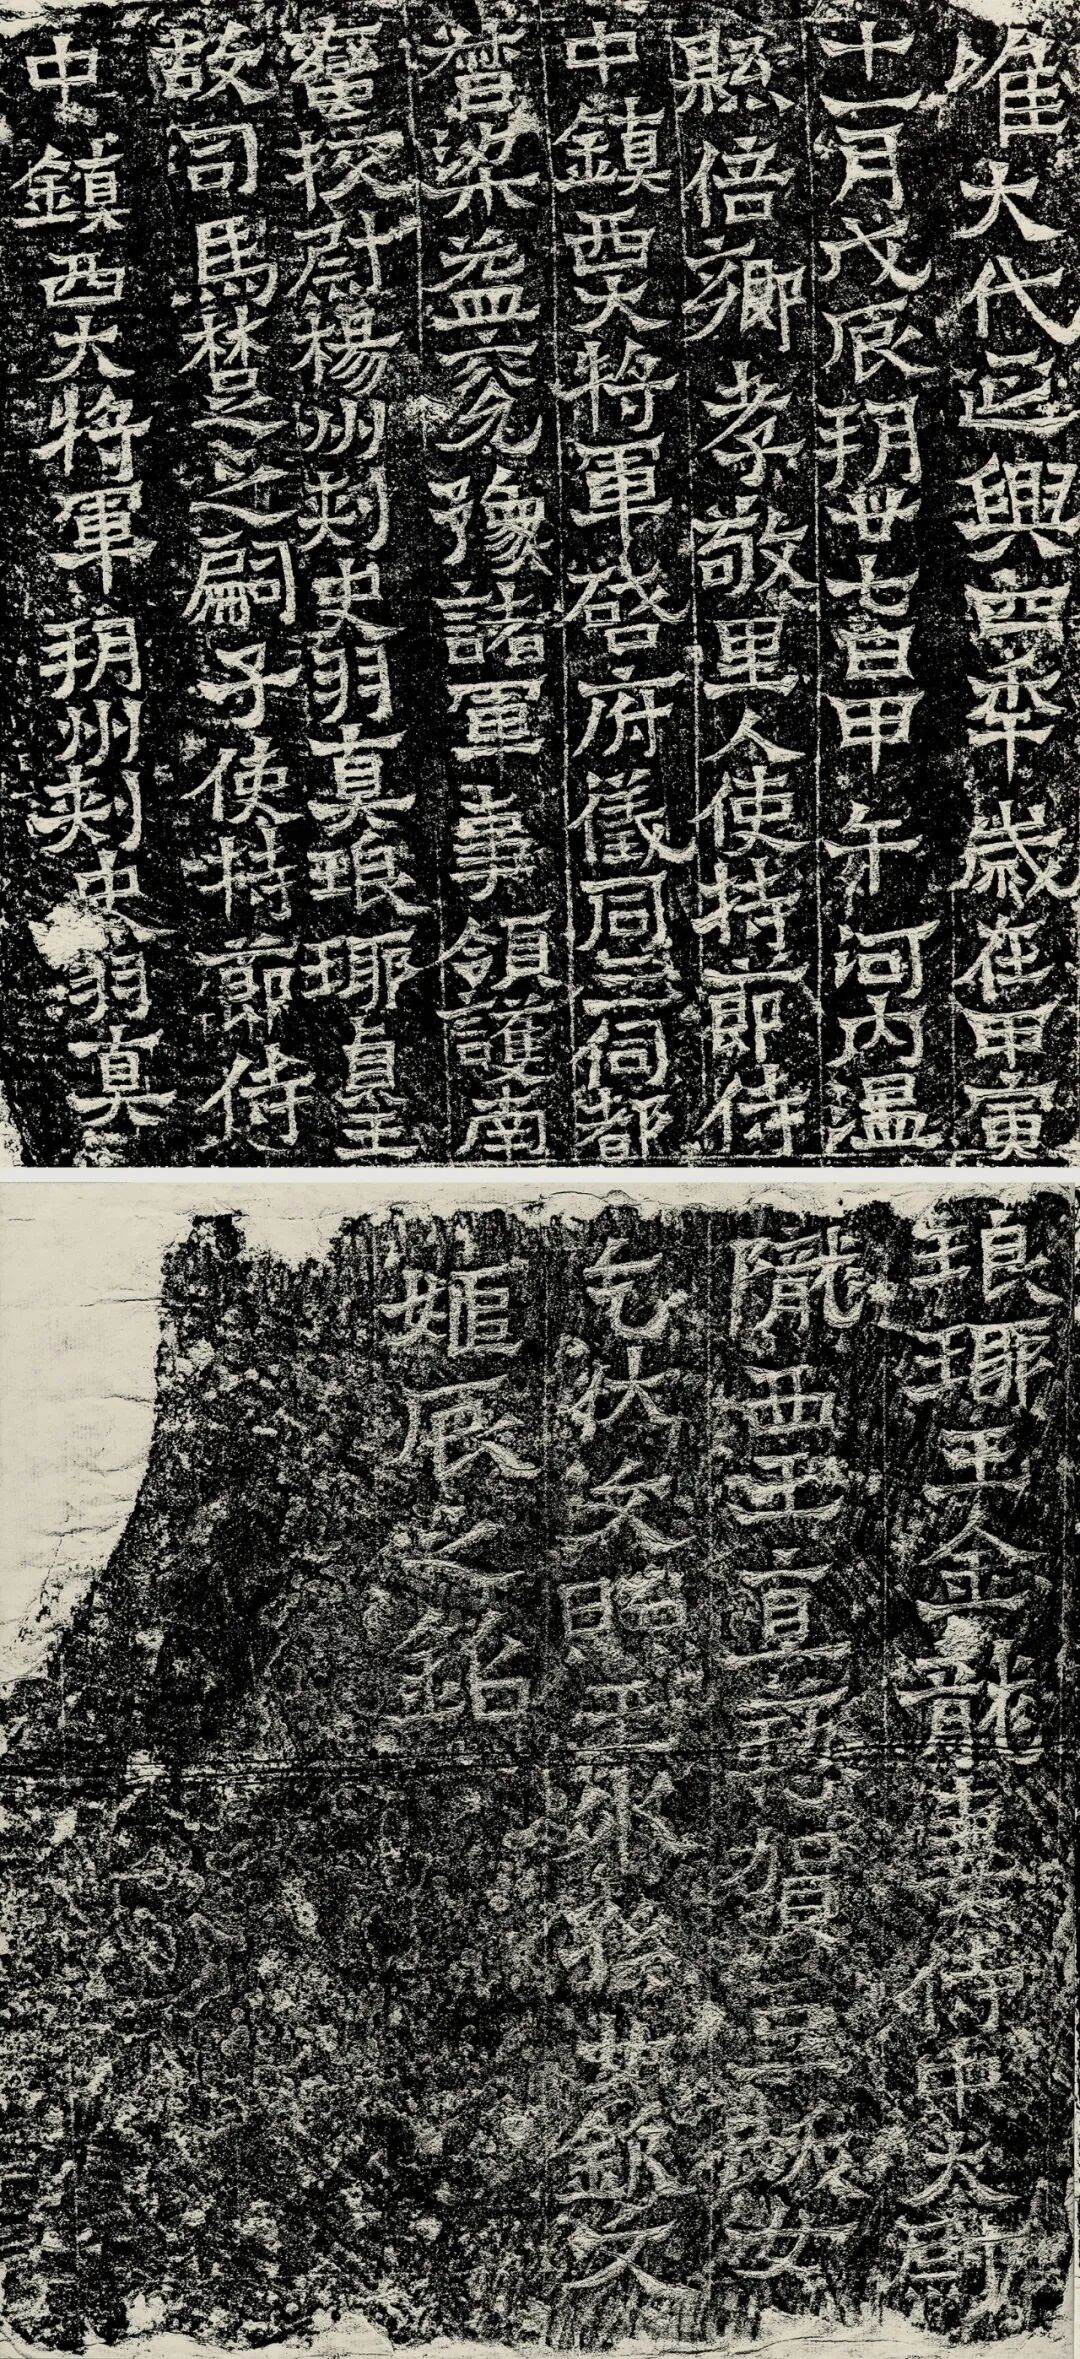 唯大代延興四年歲在甲寅
十一月戊辰朔廿七日甲午河內溫
縣倍鄉孝敬里人使持節侍
中鎮西大將軍啓府儀同三伺都
督梁益兗豫諸軍事領護南
蠻校尉楊州刺史羽真琅琊貞王
故司馬楚之之嗣子使持節侍
中鎮西大將軍朔州刺史羽真
琅琊王金龍妻侍中太尉
隴西王直懃賀豆跋女
乞伏文照王外孫女欽文
姬辰之銘